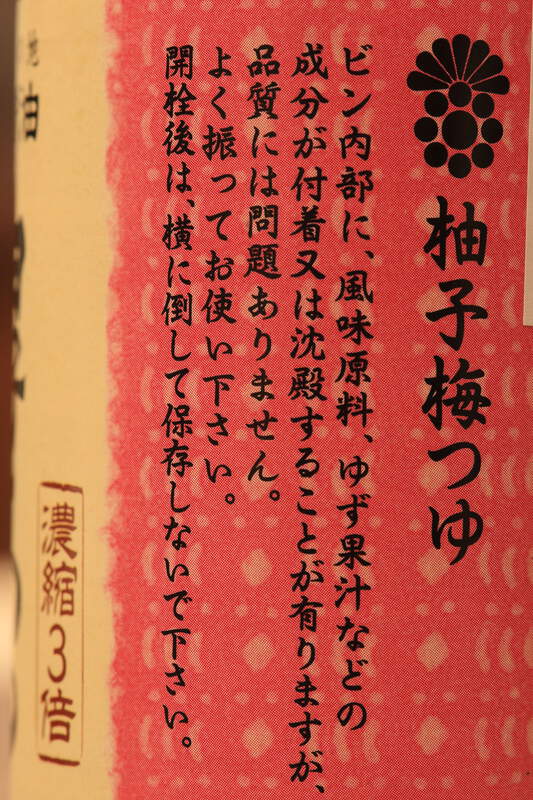 柚子梅つゆ
ビン内部に、風味原料、ゆず果汁などの
成分が付着又は沈殿することが有りますが、
品質には問題ありません。
よく振ってお使い下さい。
開栓後は、横に倒して保存しないで下さい。
濃縮3倍